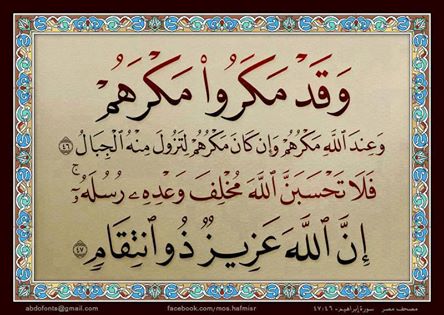 وَقَدْ مَكَرُوا۟ مَكْرَهُمْ
وَعِندَ ٱللَّهِ مَكْرُهُمْ وَإِن كَانَ مَكْرُهُمْ لِتَزُولَ مِنْهُ ٱلْجِبَالُ ٤٦
فَلَا تَحْسَبَنَّ ٱللَّهَ مُخْلِفَ وَعْدِهِۦ رُسُلَهُۥٓ ۚ
إِنَّ ٱللَّهَ عَزِيزٌ ذُو ٱنتِقَامٍ ٤٧
abdofonts@gmail.com facebook.com/mos.hafmisr مصحف مصر سورة إبراهيم - ٤٦:٤٧